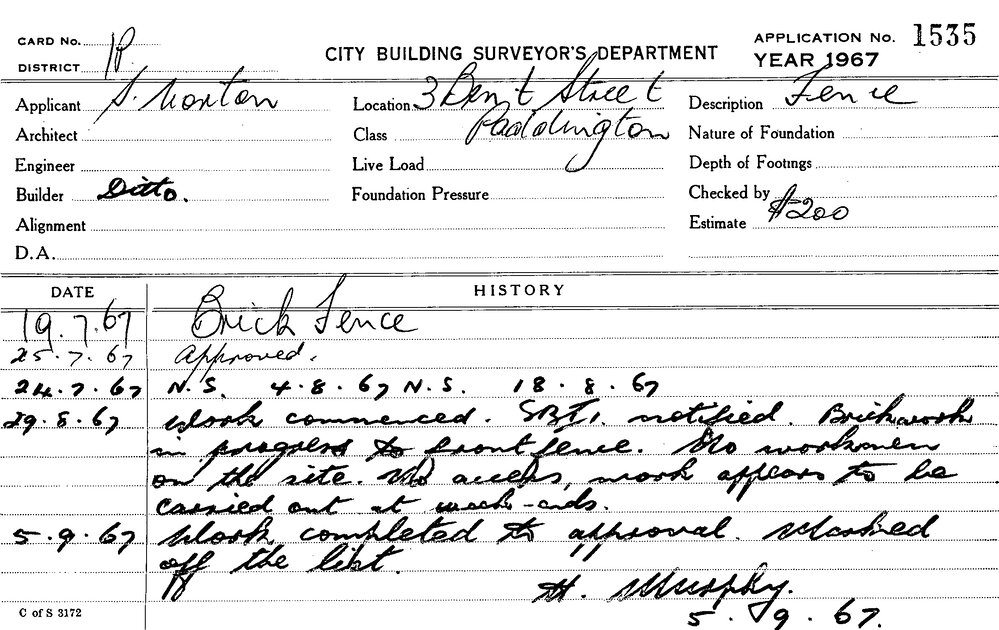 CARD No.
DISTRICT P
CITY BUILDING SURVEYOR'S DEPARTMENT
APPLICATION No. 1535
YEAR 1967
Applicant S. Morton
Location 3 Bent Street
Description Fence
Architect
Class Paddington
Nature of Foundation
Engineer
Live Load
Depth of Footings
Builder Ditto.
Foundation Pressure
Checked by
Alignment
Estimate $200
D.A.
DATE HISTORY
19.7.67 Brick Fence
25.7.67 Approved.
24.7.67 N.S. 4.8.67 N.S. 18.8.67
29.8.67 Work commenced. notified. Brickwork
in progress to front fence. No workmen
on the site. No access, work appears to be
carried out at week-ends.
5.9.67 Work completed to approval. Marked
off the list.
H. Murphy.
5.9.67.
C of S 3172